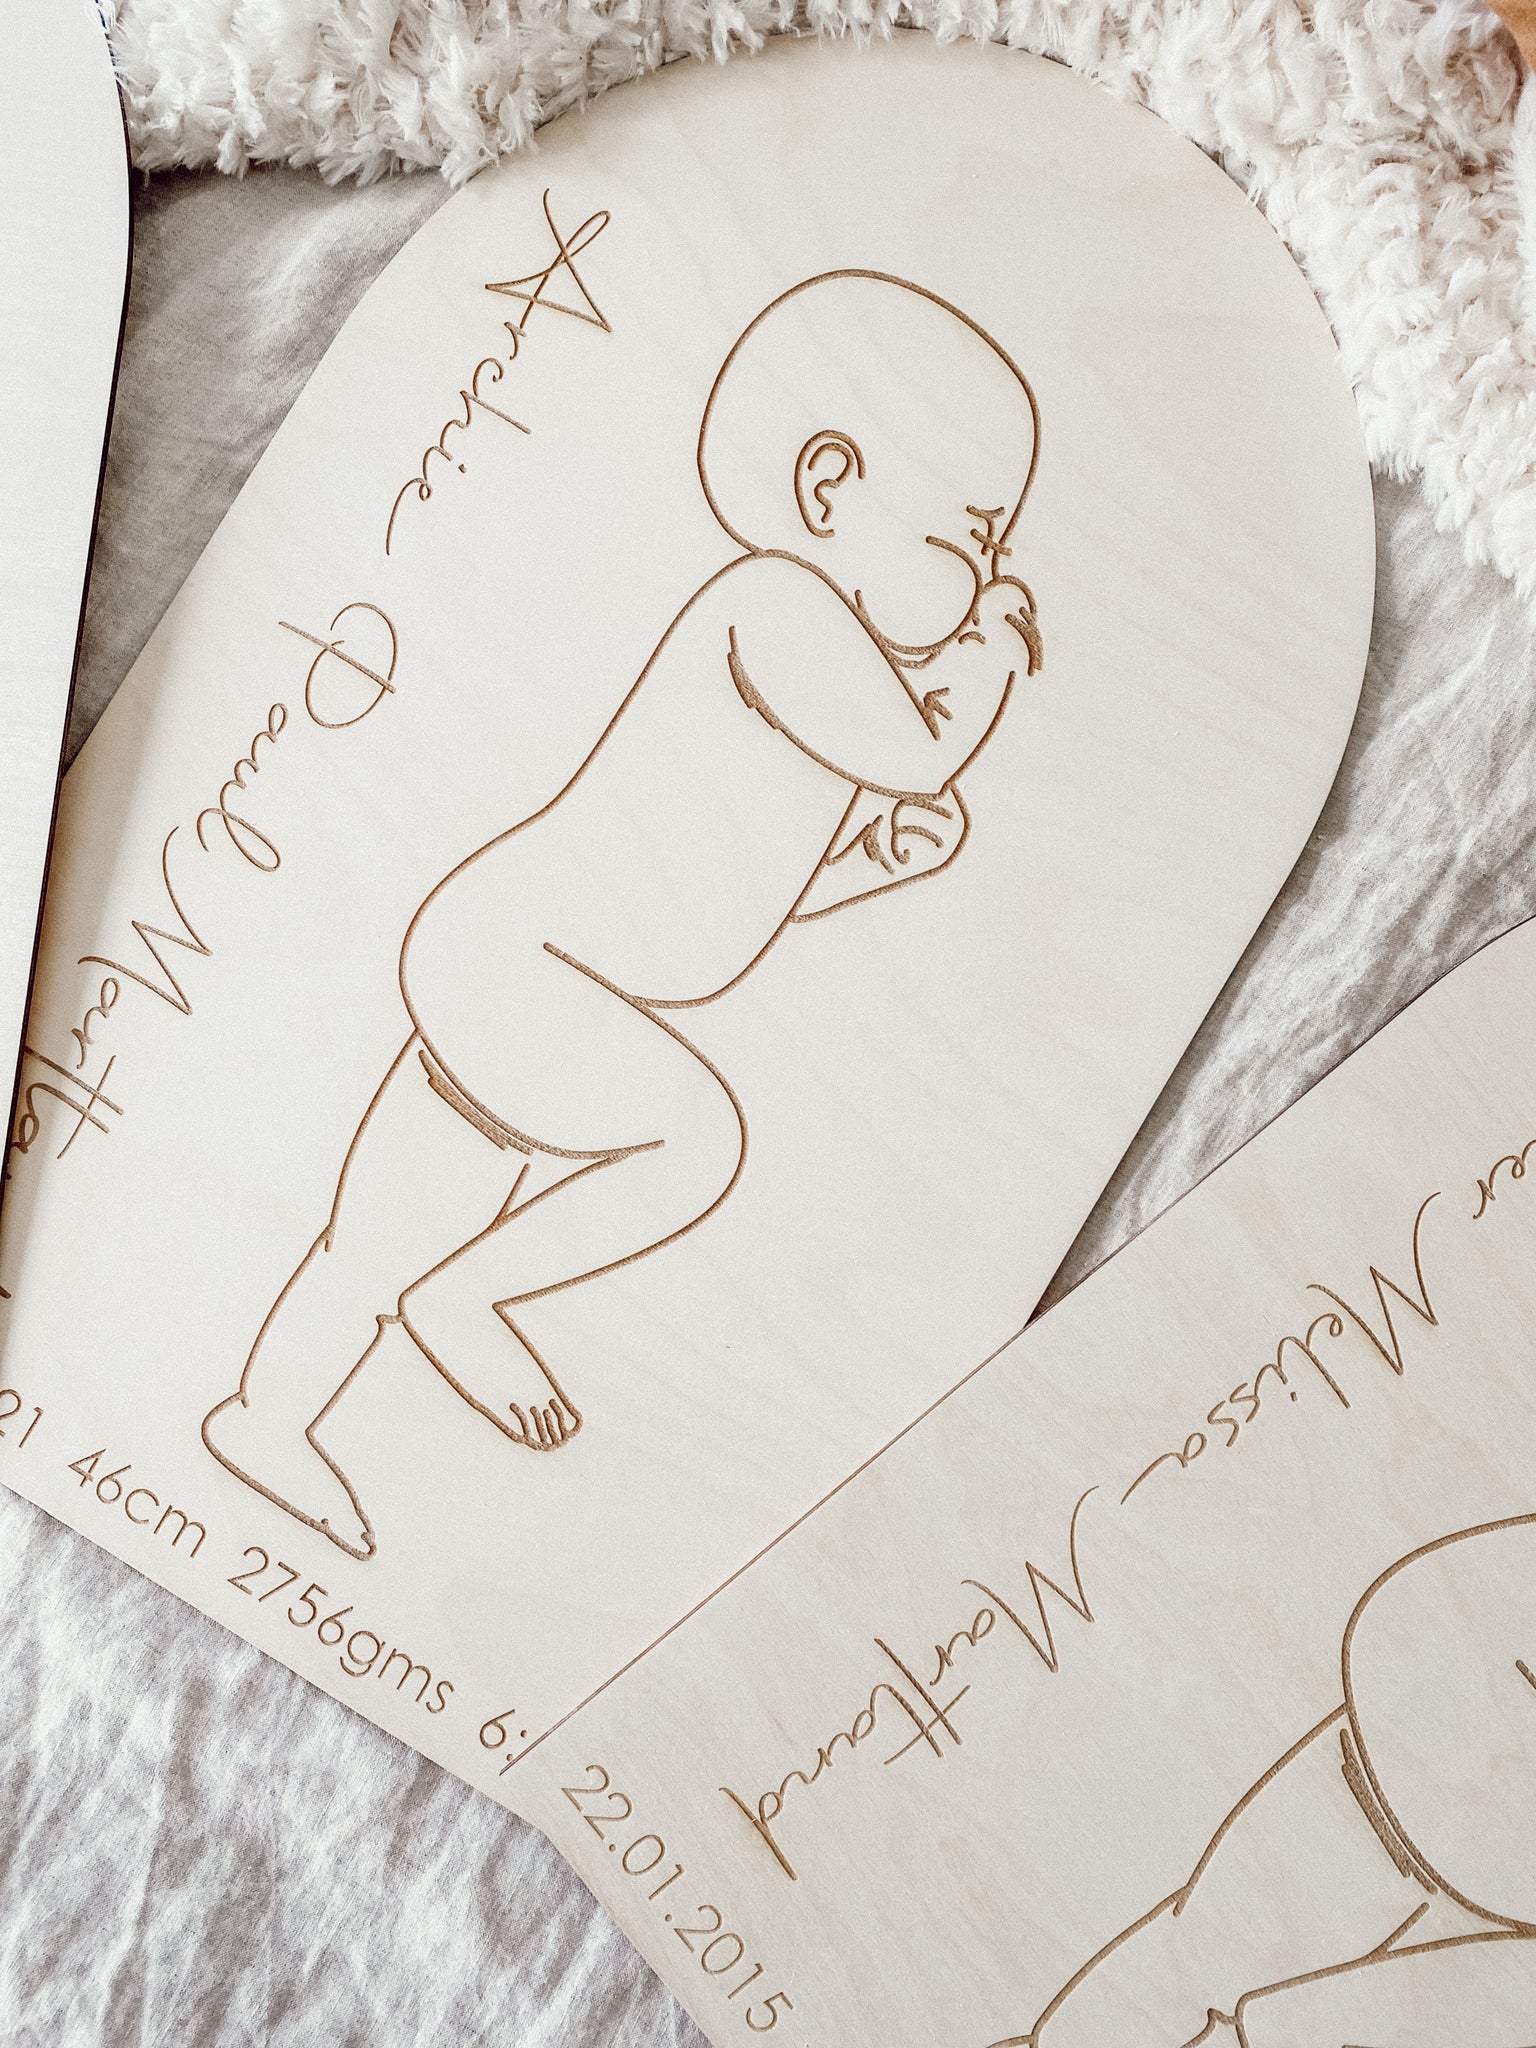 Archie Paul
21 46cm 2756gms 6:
Melissa Martland
22.01.2015